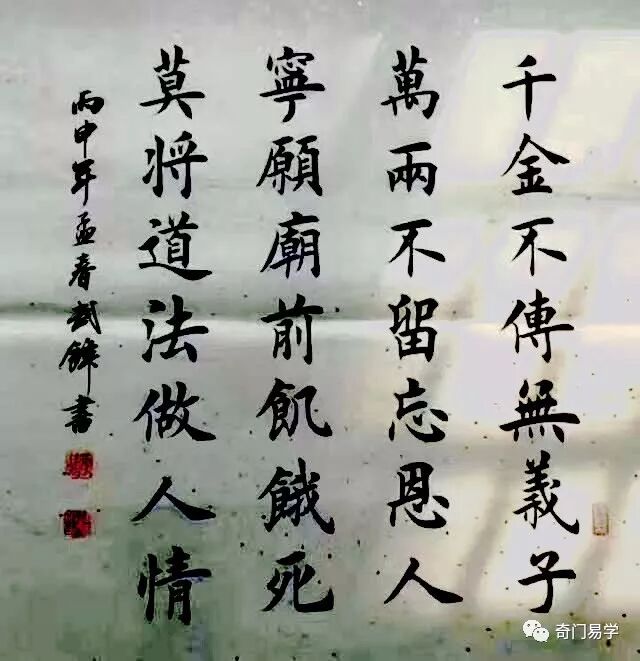 千金不傳無義子
萬兩不留忘恩人
寧願廟前飢餓死
莫將道法做人情
丙申年孟春武鋒書
奇门易学